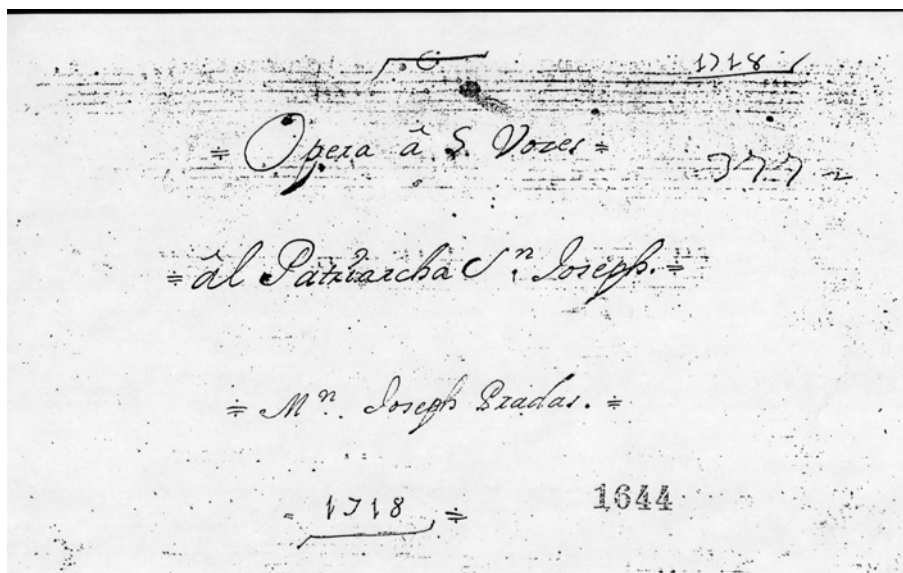 1718
= Opera â 5. Vozes =
377
= âl Patriarcha Sn. Joseph. =
= Mn. Joseph Pradas. =
= 1718 =
1644